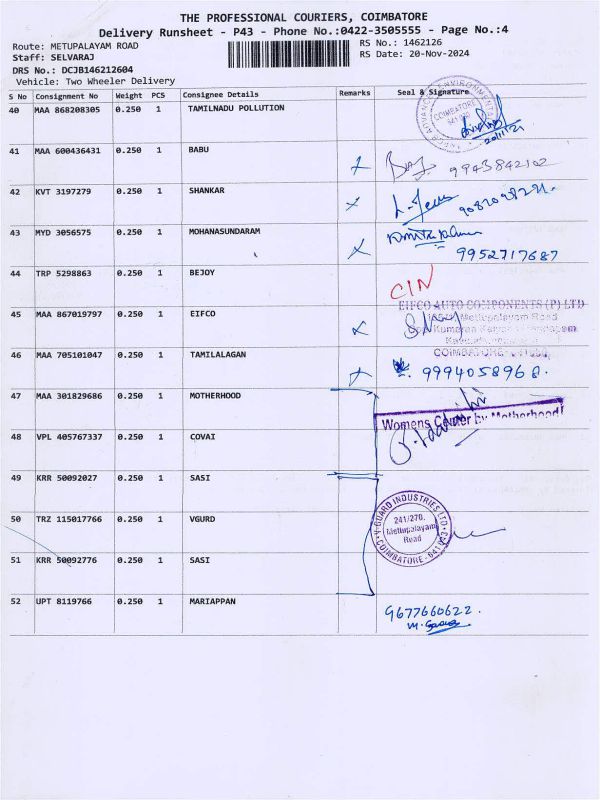 THE PROFESSIONAL COURIERS, COIMBATORE
Delivery Runsheet - P43 - Phone No.:0422-3505555 - Page No.:4
Route: METUPALAYAM ROAD RS No.: 1462126
Staff: SELVARAJ RS Date: 20-Nov-2024
DRS No.: DCJB146212604
Vehicle: Two Wheeler Delivery
S No Consignment No Weight PCS Consignee Details Remarks Seal & Signature
40 MAA 868208305 0.250 1 TAMILNADU POLLUTION
COIMBATORE
41 MAA 600436431 0.250 1 BABU
9943842102
42 KVT 3197279 0.250 1 SHANKAR
43 MYD 3056575 0.250 1 MOHANASUNDARAM
9952717687
44 TRP 5298863 0.250 1 BEJOY
CIN
EIFCO AUTO COMPONENTS (P) LTD
45 MAA 867019797 0.250 1 EIFCO
Mettupalayam Road
COIMBATORE
46 MAA 705101047 0.250 1 TAMILALAGAN
9994058968.
47 MAA 301829686 0.250 1 MOTHERHOOD
Womens Center by Motherhood
48 VPL 405767337 0.250 1 COVAI
49 KRR 50092027 0.250 1 SASI
50 TRZ 115017766 0.250 1 VGURD
V-GUARD INDUSTRIES LTD
241/270,
Mettupalayam
Road
COIMBATORE
51 KRR 50092776 0.250 1 SASI
52 UPT 8119766 0.250 1 MARIAPPAN
9677660622.